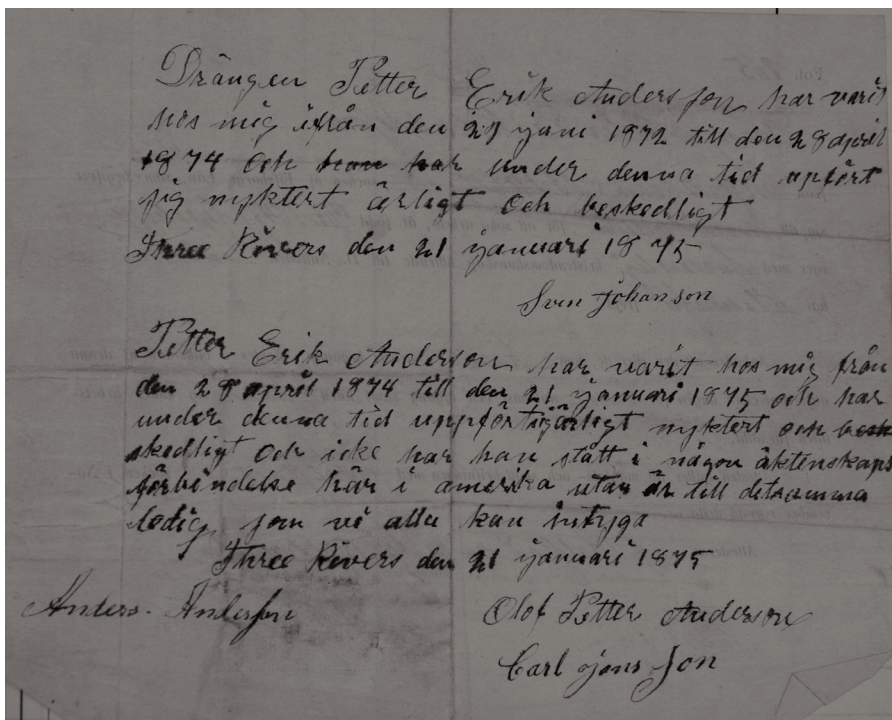 Drängen Petter Erik Andersson har varit
hos mig ifrån den 29 juni 1872 till den 28 april
1874 och har under denna tid upfört
sig nyktert ärligt och beskedligt
Three Rivers den 21 januari 1875
Sven Johanson
Petter Erik Anderson har varit hos mig från
den 28 april 1874 till den 21 januari 1875 och har
under denna tid uppfört sig ärligt nyktert och besk
skedligt och icke har han stått i någon äktenskaps
förbindelse här i amerika utan är till detsamma
ledig som vi alla kan intyga
Three Rivers den 21 januari 1875
Anders Andersson
Olof Petter Anderson
Carl Jonsson